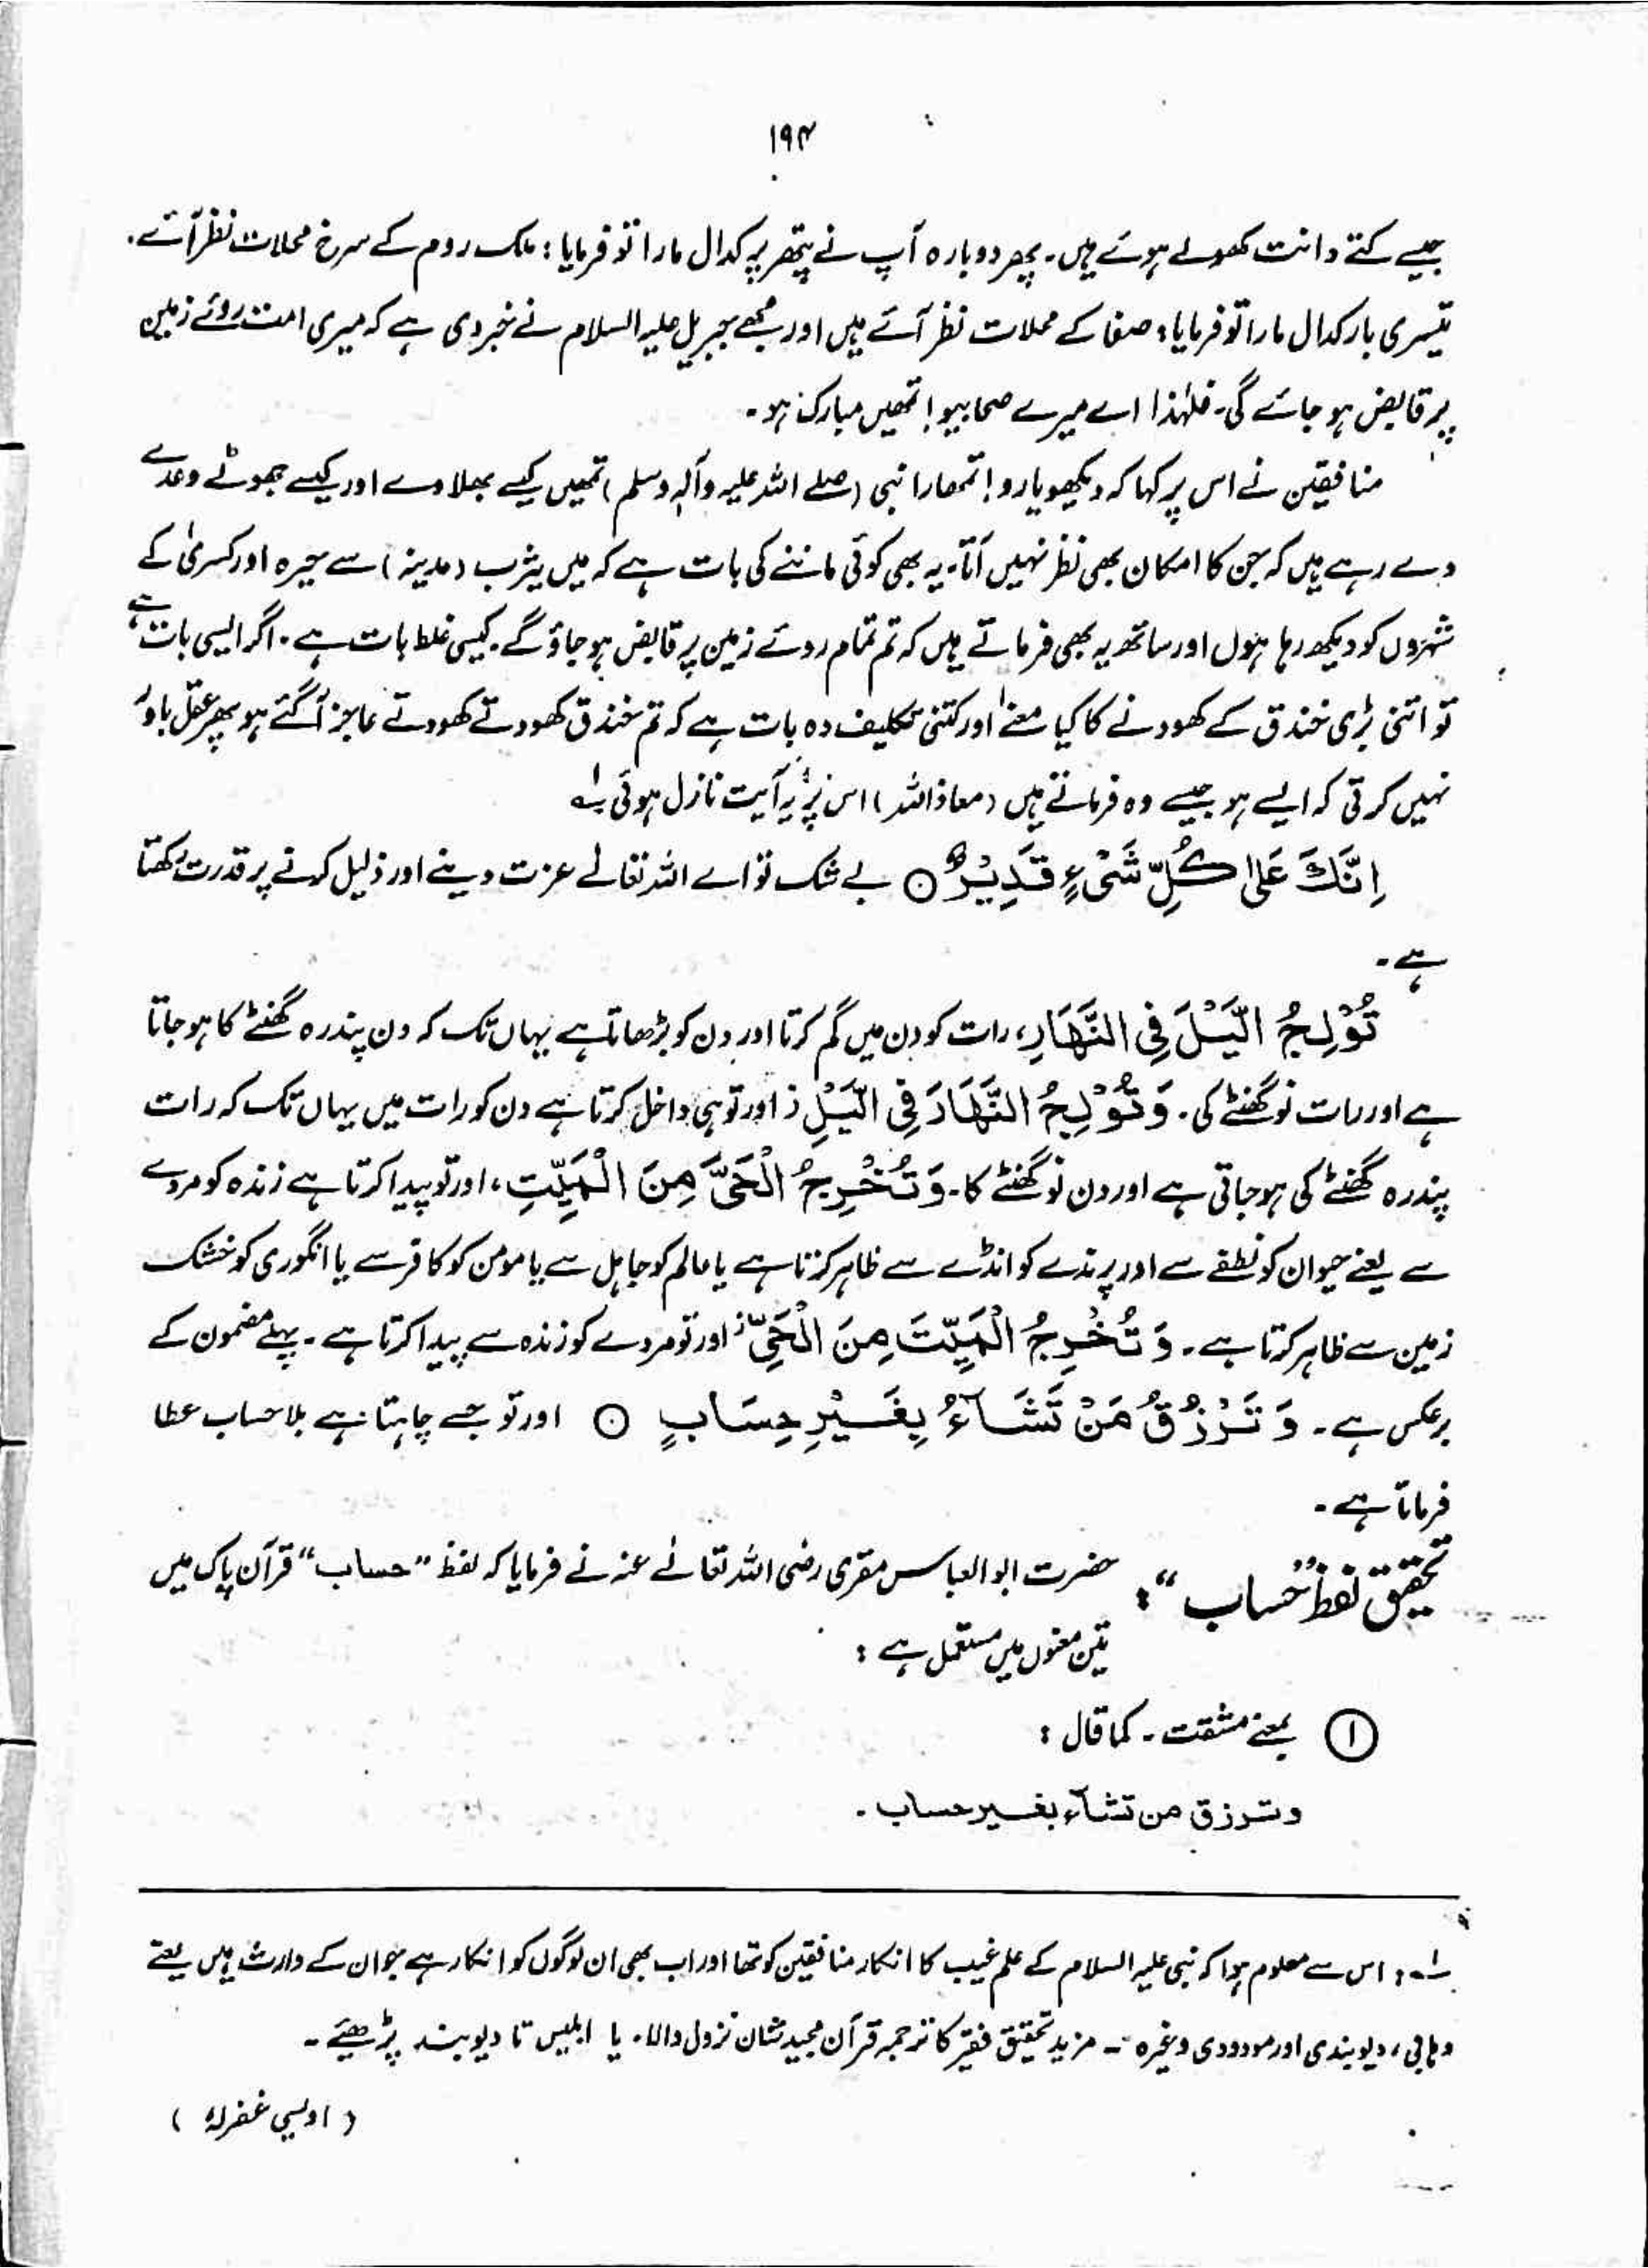 ۱۹۴
جیسے کتے دانت کھولے ہوئے ہیں۔ پھر دوبارہ آپ نے پتھر پر کدال مارا تو فرمایا: ملک روم کے سرخ محلات نظر آئے۔
تیسری بار کدال مارا تو فرمایا: صنعا کے محلات نظر آئے ہیں اور مجھے جبریل علیہ السلام نے خبر دی ہے کہ میری امت روئے زمین
پر قابض ہو جائے گی۔ فلہٰذا اے میرے صحابیو! تمھیں مبارک ہو۔
منافقین نے اس پر کہا کہ دیکھو یارو! تمھارا نبی (صلے اللہ علیہ وآلہٖ وسلم) تمھیں کیسے بھلاوے اور کیسے جھوٹے وعدے
دے رہے ہیں کہ جن کا امکان بھی نظر نہیں آتا۔ یہ بھی کوئی ماننے کی بات ہے کہ میں یثرب (مدینہ) سے حیرہ اور کسریٰ کے
شہروں کو دیکھ رہا ہوں اور ساتھ یہ بھی فرماتے ہیں کہ تم تمام روئے زمین پر قابض ہو جاؤ گے۔ کیسی غلط بات ہے۔ اگر ایسی بات ہے
تو اتنی بڑی خندق کے کھودنے کا کیا معنے اور کتنی تکلیف دہ بات ہے کہ تم خندق کھودتے کھودتے عاجز آگئے ہو پھر عقل باور
نہیں کرتی کہ ایسے ہو جیسے وہ فرماتے ہیں (معاذ اللہ) اس پر یہ آیت نازل ہوئی لہ
اِنَّكَ عَلٰى كُلِّ شَىْءٍ قَدِيْرٌ ○ بے شک تو اے اللہ تعالےٰ عزت دینے اور ذلیل کرنے پر قدرت رکھتا
ہے۔
تُوْلِجُ الَّيْلَ فِى النَّهَارِ، رات کو دن میں گم کرتا اور دن کو بڑھاتا ہے یہاں تک کہ دن پندرہ گھنٹے کا ہو جاتا
ہے اور رات نو گھنٹے کی۔ وَتُوْلِجُ النَّهَارَ فِى الَّيْلِ ز اور تو ہی داخل کرتا ہے دن کو رات میں یہاں تک کہ رات
پندرہ گھنٹے کی ہو جاتی ہے اور دن نو گھنٹے کا۔ وَتُخْرِجُ الْحَىَّ مِنَ الْمَيِّتِ، اور تو پیدا کرتا ہے زندہ کو مردے
سے یعنے حیوان کو نطفے سے اور پرندے کو انڈے سے ظاہر کرتا ہے یا عالم کو جاہل سے یا مومن کو کافر سے یا انگوری کو خشک
زمین سے ظاہر کرتا ہے۔ وَتُخْرِجُ الْمَيِّتَ مِنَ الْحَىِّ ز اور تو مردے کو زندہ سے پیدا کرتا ہے۔ پہلے مضمون کے
برعکس ہے۔ وَتَرْزُقُ مَنْ تَشَآءُ بِغَيْرِ حِسَابٍ ○ اور تو جسے چاہتا ہے بلا حساب عطا
فرماتا ہے۔
تحقیق لفظ "حساب": حضرت ابو العباس مقری رضی اللہ تعالےٰ عنہ نے فرمایا کہ لفظ "حساب" قرآن پاک میں
تین معنوں میں مستعمل ہے:
① بمعنے مشقت۔ کما قال:
وترزق من تشآء بغیر حساب۔
لہ: اس سے معلوم ہوا کہ نبی علیہ السلام کے علم غیب کا انکار منافقین کو تھا اور اب بھی ان لوگوں کو انکار ہے جو ان کے وارث ہیں یعنے
وہابی، دیوبندی اور مودودی وغیرہ۔ مزید تحقیق فقیر کا ترجمہ قرآن مجید شان نزول والا۔ یا ابلیس تا دیوبند پڑھیئے۔
(اویسی غفرلہٗ)